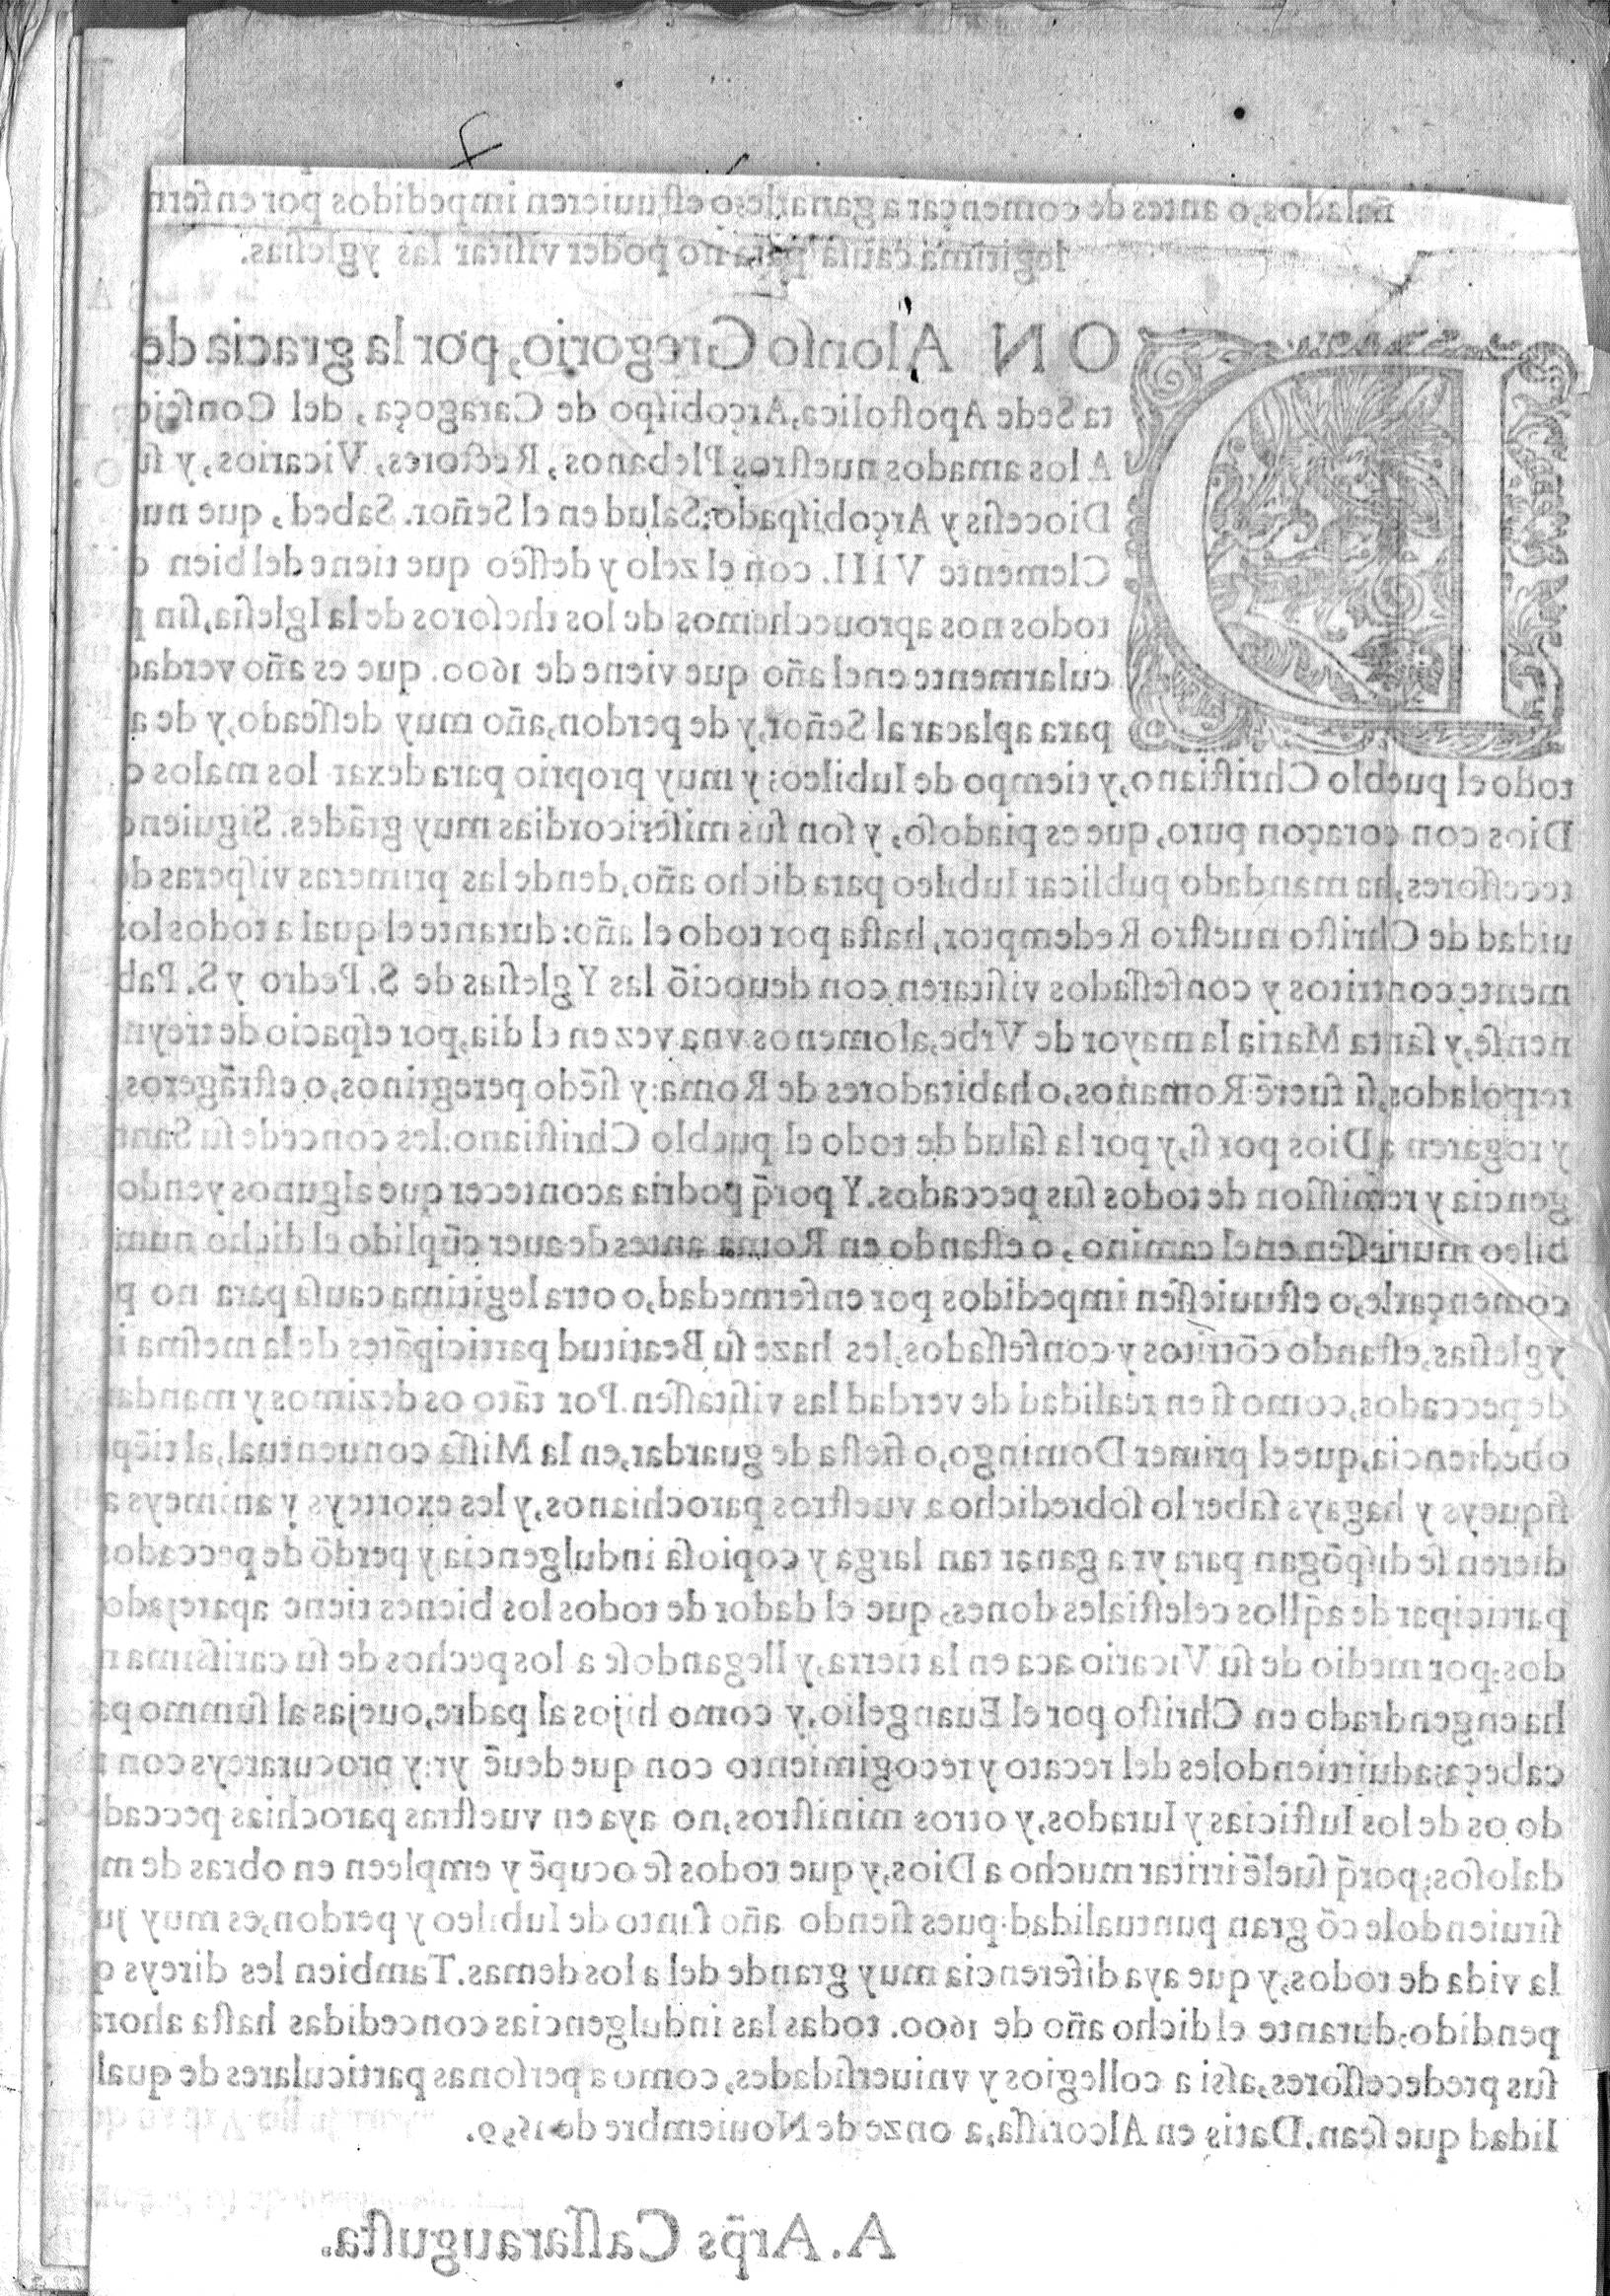 ñalados, o antes de començar a ganarle, o estuuieren impedidos por enferm
legitima causa para no poder visitar las yglesias.
DON Alonso Gregorio, por la gracia de
ta Sede Apostolica, Arçobispo de Caragoça, del Consejo
A los amados nuestros Plebanos, Rectores, Vicarios, y su
Diocesis y Arçobispado: Salud en el Señor. Sabed, que nue
Clemente VIII. con el zelo y desseo que tiene del bien d
todos nos aprouechemos de los thesoros de la Iglesia, sin p
cularmente en el año que viene de 1600. que es año verdad
para aplacar al Señor, y de perdon, año muy desseado, y de a
todo el pueblo Christiano, y tiempo de Iubileo; y muy proprio para dexar los malos c
Dios con coraçon puro, que es piadoso, y son sus misericordias muy grãdes. Siguiend
tecessores, ha mandado publicar Iubileo para dicho año, dende las primeras visperas de
uidad de Christo nuestro Redemptor, hasta por todo el año: durante el qual a todos los
mente contritos y confessados visitaren con deuociõ las Yglesias de S. Pedro y S. Pab
nense, y santa Maria la mayor de Vrbe, alomenos vna vez en el dia, por espacio de treyn
terpolados, si fuerẽ Romanos, o habitadores de Roma: y siẽdo peregrinos, o estrãgeros,
y rogaren a Dios por si, y por la salud de todo el pueblo Christiano: les concede su Sant
gencia y remission de todos sus peccados. Y porq̃ podria acontecer que algunos yendo
bileo muriessen en el camino, o estando en Roma antes de auer cũplido el dicho num
començarle, o estuuiessen impedidos por enfermedad, o otra legitima causa para no p
yglesias, estando cõtritos y confessados, les haze su Beatitud participãtes de la mesma i
de peccados, como si en realidad de verdad las visitassen. Por tãto os dezimos y mandam
obediencia, que el primer Domingo, o fiesta de guardar, en la Missa conuentual, al tiẽp
fiqueys y hagays saber lo sobredicho a vuestros parochianos, y les exorteys y animeys a
dieren se dispõgan para yr a ganar tan larga y copiosa indulgencia y perdõ de peccados
participar de aq̃llos celestiales dones, que el dador de todos los bienes tiene aparejado
dos: por medio de su Vicario aca en la tierra, y llegandose a los pechos de su carissima m
ha engendrado en Christo por el Euangelio, y como hijos al padre, ouejas al summo pa
cabeça: aduirtiendoles del recato y recogimiento con que deuẽ yr: y procurareys con
do os de los Iusticias y Iurados, y otros ministros, no aya en vuestras parochias peccad
dalosos; porq̃ suelẽ irritar mucho a Dios, y que todos se ocupẽ y empleen en obras de m
siruiendole cõ gran puntualidad: pues siendo año santo de Iubileo y perdon, es muy ju
la vida de todos, y que aya diferencia muy grande del a los demas. Tambien les direys q
pendido: durante el dicho año de 1600. todas las indulgencias concedidas hasta ahora
sus predecessores, assi a collegios y vniuersidades, como a personas particulares de qual
lidad que sean. Datis en Alcorissa, a onze de Nouiembre de 1599.
A. Arp̃s Cæsaraugusta.